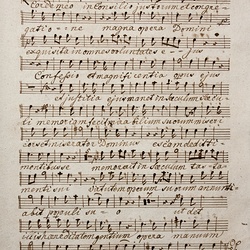 corde meo in consilio justorum et congre
gatio - ne magna opera Domini
exquisita in omnes voluntates e - jus
Confessio et magnificentia opus ejus
et justitia ejus manet in sæculum sæcu
ti memor
misericors et miserator Dominus escam dedit ti
mentibus se memor in sæculum tes ta
menti sui virtutem operum suorum annunti
abit populi su - o ut det
hæreditatem gentium opera manuum